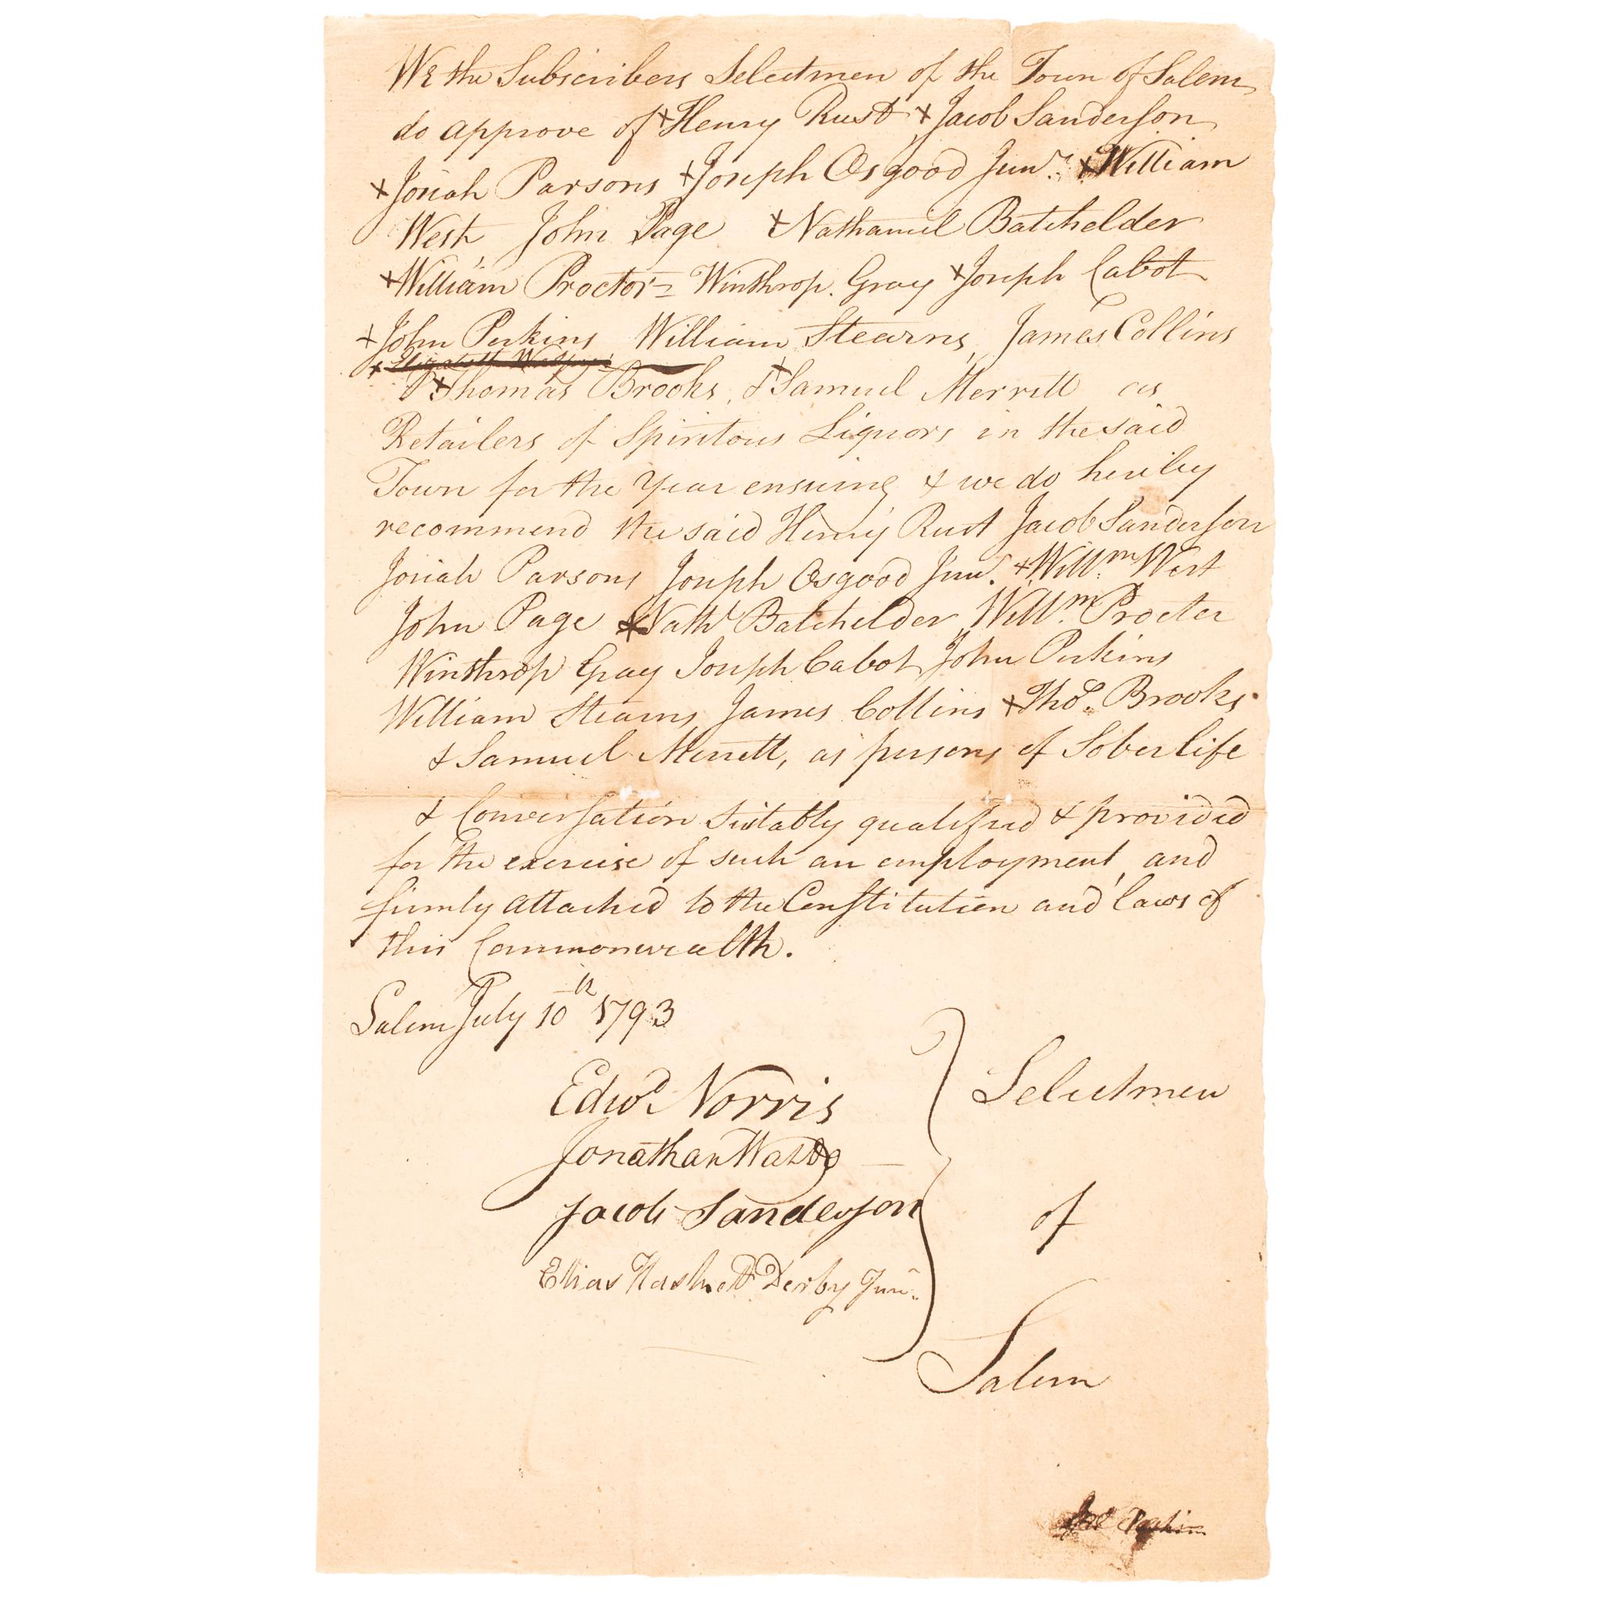 We the Subscribers Selectmen of the Town of Salem
do approve of + Henry Rust + Jacob Sanderson
+ Josiah Parsons + Joseph Osgood Junr. + William
West John Page + Nathaniel Batchelder
+ William Proctor = Winthrop. Gray + Joseph Cabot
+ John Perkins William Stearns, James Collins
+ Thomas Brooks, & + Samuel Merritt as
Retailers of Spiritous Liquors in the said
Town for the Year ensuing & we do hereby
recommend the said Henry Rust Jacob Sanderson
Josiah Parsons Joseph Osgood Junr. + Willm. West
John Page + Nathl Batchelder Willm. Procter
Winthrop Gray Joseph Cabot John Perkins
William Stearns James Collins + Thos. Brooks
& Samuel Merrett, as persons of Sober life
& Conversation suitably qualified & provided
for the exercise of such an employment, and
firmly attached to the Constitution and Laws of
this Commonwealth.
Salem July 10th 1793
Edwd. Norris
Jonathan
Jacob Sanderson
Elias Hasket Derby Junr.
Selectmen
of
Salem